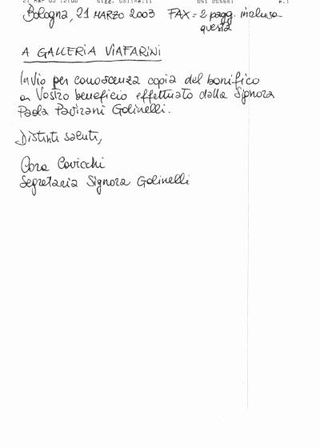 Bologna, 21 MARZO 2003 FAX = 2 pagg. inclusa
questa
A GALLERIA VIAFARINI
Invio per conoscenza copia del bonifico
a Vostro beneficio effettuato dalla Signora
Paola Pavirani Golinelli.
Distinti saluti,
Cora Cavicchi
Segretaria Signora Golinelli